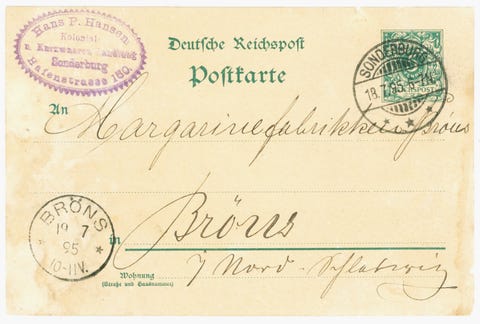 Hans P. Hansen
Kolonial-
u. Kurzwaaren Handlung
Sonderburg
Hafenstrasse 180.
Deutsche Reichspost
Postkarte
SONDERBURG
18.7.95. 7-N.
REICHSPOST
An
Margarinefabrikken Bröns
BRÖNS
19 7
95
10-11V.
in
Bröns
Wohnung
(Straße und Hausnummer)
7 Nord-Schleswig